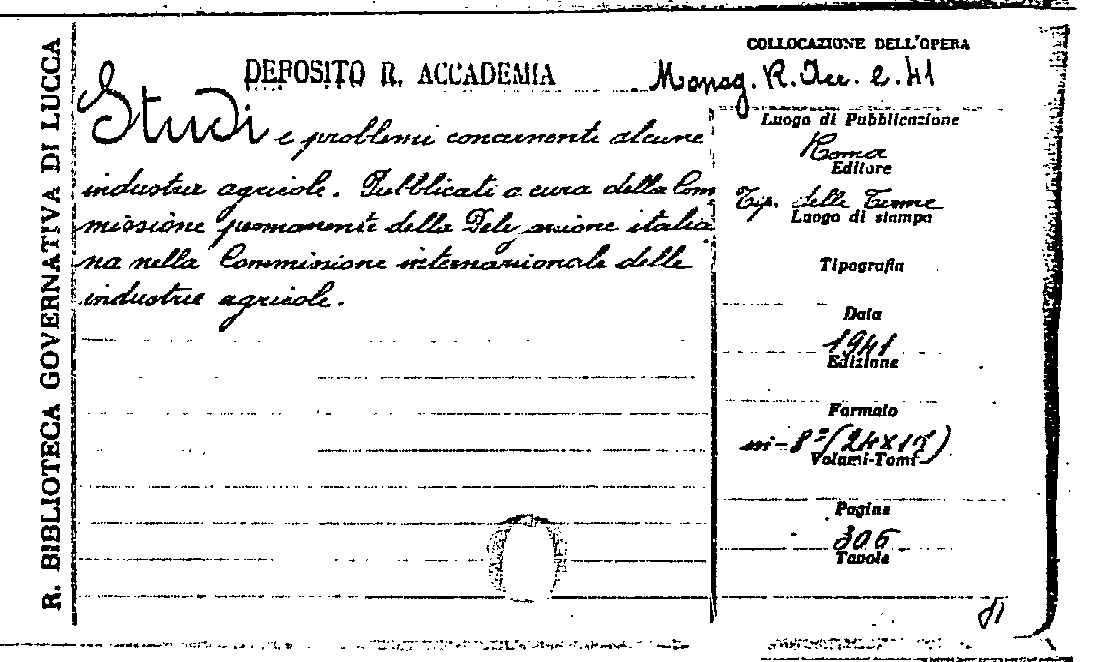 R. BIBLIOTECA GOVERNATIVA DI LUCCA
DEPOSITO R. ACCADEMIA
Studi e problemi concernenti alcune
industrie agricole. Pubblicati a cura della Com
missione permanente della Delegazione italia
na nella Commissione internazionale delle
industrie agricole.
COLLOCAZIONE DELL'OPERA
Monog. R. Acc. 2. 41
Luogo di Pubblicazione
Roma
Editore
Tip. delle Terme
Luogo di stampa
Tipografia
Data
1941
Edizione
Formato
in-8° (24x17)
Volumi-Tomi
Pagine
306
Tavole